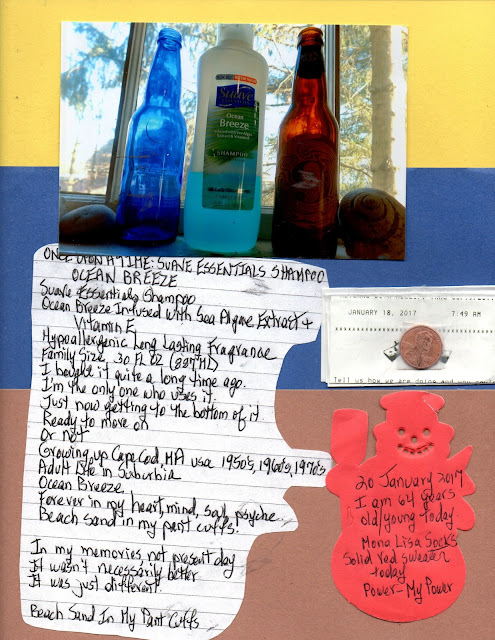 Suave
Ocean
Breeze
SHAMPOO
ONCE UPON A TIME: SUAVE ESSENTIALS SHAMPOO
OCEAN BREEZE
Suave Essentials Shampoo
Ocean Breeze Infused with Sea Algae Extract +
Vitamin E
Hypoallergenic Long Lasting Fragrance
Family Size 30 FL OZ (887 ML)
I bought it quite a long time ago.
I'm the only one who uses it.
Just now getting to the bottom of it
Ready to move on
Or not
Growing up Cape Cod, MA usa 1950's, 1960's, 1970's
Adult life in Suburbia
Ocean Breeze,
Forever in my heart, mind, soul, psyche.
Beach sand in my pant cuffs.
In my memories not present day
It wasn't necessarily better
It was just different.
Beach Sand In My Pant Cuffs
JANUARY 18, 2017 7:49 AM
Tell us how we are doing and you
20 January 2017
I am 64 years
old/young today
Mona Lisa Socks
Solid red sweater
today
Power - My Power